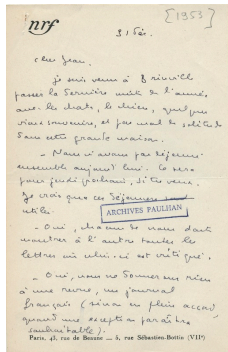 nrf
[1953]
31 Déc.
cher Jean,
je suis venu à Brinville
passer la dernière nuit de l'année,
avec les chats, le chien, quelques
vieux souvenirs, et pas mal de solitude
dans cette grande maison.
– Nous n'avons pas déjeuné
ensemble aujourd'hui. Ce sera
pour jeudi prochain, si tu veux.
Je crois que ces déjeuners sont
utiles.
ARCHIVES PAULHAN
– Oui, chacun de nous doit
montrer à l'autre toutes les
lettres où celui-ci est critiqué.
– Oui, nous ne donnerons rien
à une revue, un journal
français (sinon en plein accord,
quand une exception paraîtra
souhaitable).
Paris, 43, rue de Beaune — 5, rue Sébastien-Bottin (VIIe)